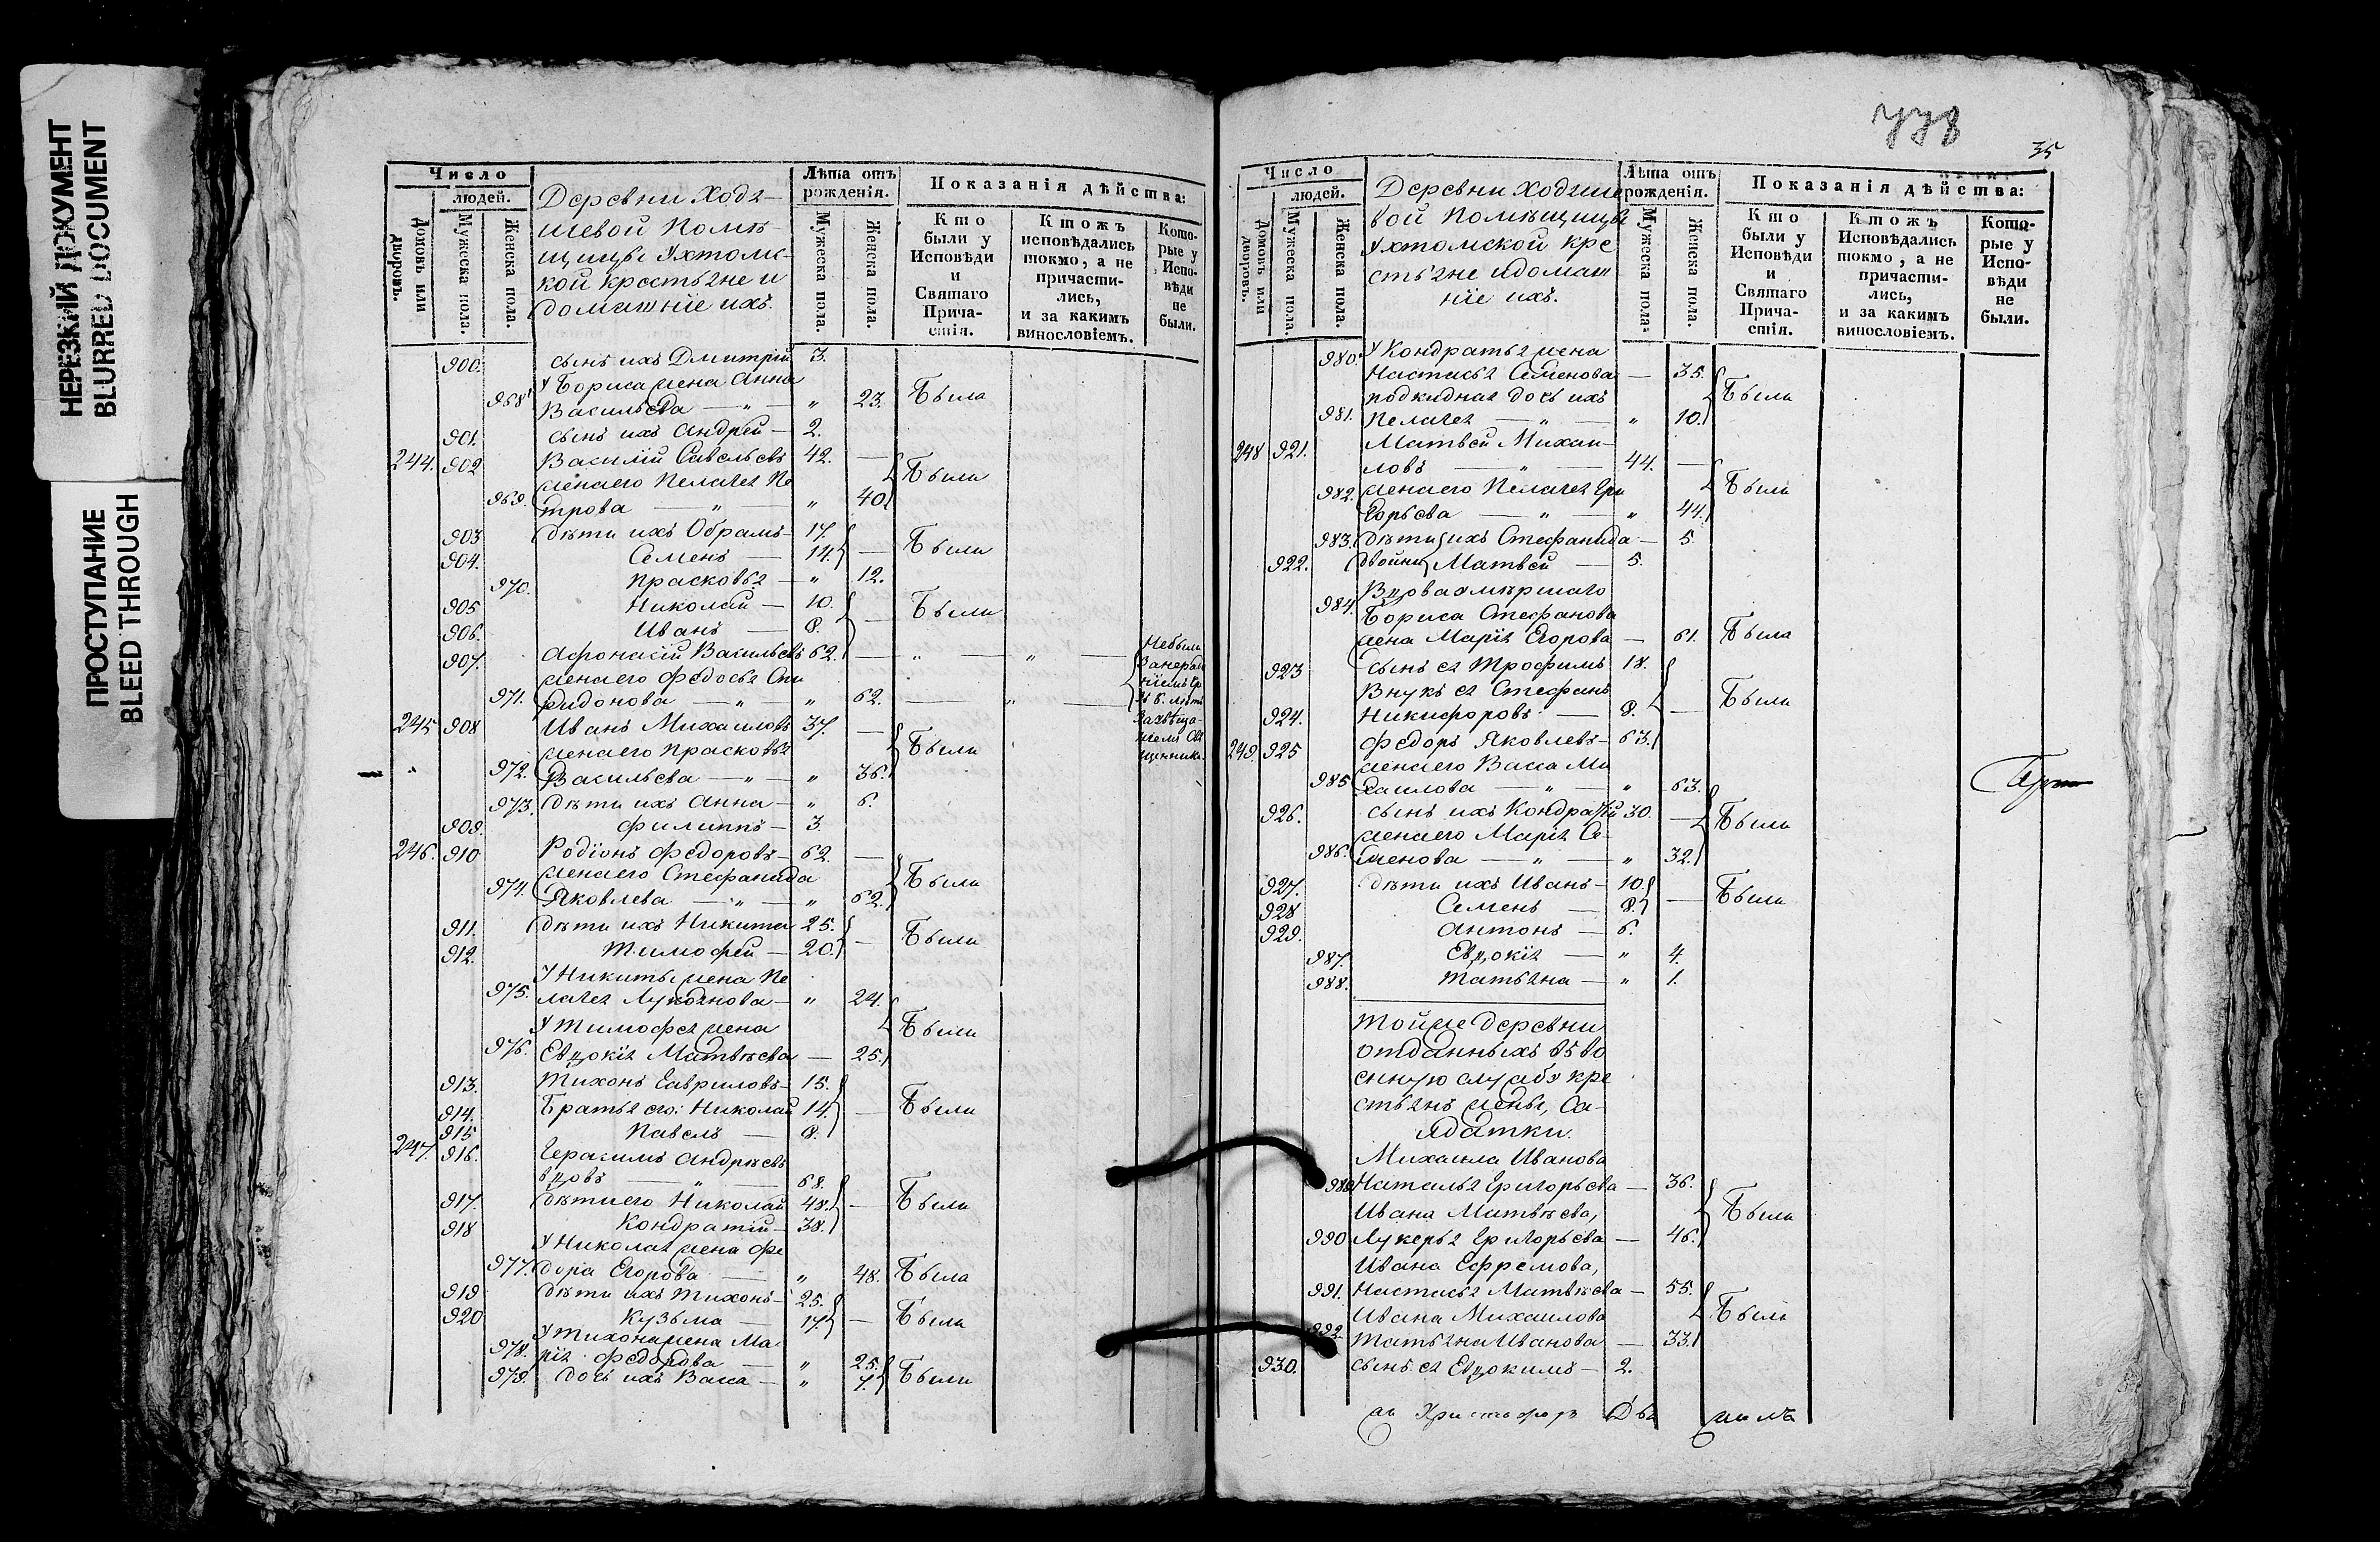 НЕРЕЗКИЙ ДОКУМЕНТ
BLURRED DOCUMENT
ПРОСТУПАНИЕ
BLEED THROUGH
Число
людей.
Домовъ или дворовъ.
Мужеска пола.
Женска пола.
Деревни Ходя-
шевой Помѣ-
щицы Ухтомс-
кой крестьяне и
домашніе ихъ.
Лѣта отъ
рожденія.
Мужеска пола.
Женска пола.
Показанія дѣйства:
Кто
были у
Исповѣди
и
Святаго
Прича-
стія.
Ктожъ
исповѣдались
токмо, а не
причасти-
лись,
и за какимъ
винословіемъ.
Кото-
рые у
Испо-
вѣди
не
были.
900. сынъ ихъ Дмитрій 3.
У Бориса жена Анна
968. Васильева — " — " 23. Была
901. сынъ ихъ Андрей — 2.
244. 902 Василий Савельевъ 42. — Были
жена его Пелагея Пе
969. трова — " — " 40.
903. дѣти ихъ Обрамъ — 17.
904. Семенъ — 14. — Были
970. Прасковья — " 12.
905 Николай — 10. Были
906. Иванъ — 8. —
907. Афонасій Васильевъ 62. — " — " — Небыли
жена его Федосья Спи
971. ридонова — " — " 62. — " —
245 908 Иванъ Михаиловъ 37. —
жена его Прасковья Были
972. Васильева — " — " 36.
973. дѣти ихъ Анна — " 6.
909. Филиппъ — 3.
246. 910 Родіонъ Федоровъ — 62. —
жена его Стефанида Были
974. Яковлева — " — " 62.
911. дѣти ихъ Никита 25.
912. Тимофей — 20. — Были
У Никиты жена Пе
975. лагея Лукоянова — " 24.
У Тимофея жена Были
976. Евдокія Матвѣева — 25.
913. Тихонъ Гавриловъ — 15.
914. Братья его: Николай 14. — Были
915 Павелъ — 8.
247. 916. Герасимъ Андрѣевъ
вдовъ — " — 68.
917. дѣти его Николай 48. — Были
918 Кондратій — 38.
У Николая жена Фе
977. дора Егорова — " 48. Была
919 дѣти ихъ Тихонъ — 25.
920 Кузьма — 17. — Были
У Тихона жена Ма-
978. рія Федорова — " 25.
979. дочь ихъ Васса — " 7. Были
778
35
Число
людей.
Домовъ или дворовъ.
Мужеска пола.
Женска пола.
Деревни Ходяше
вой Помѣщицы
Ухтомской кре
стьяне и домаш
ніе ихъ.
Лѣта отъ
рожденія.
Мужеска пола.
Женска пола.
Показанія дѣйства:
Кто
были у
Исповѣди
и
Святаго
Прича-
стія.
Ктожъ
Исповѣдались
токмо, а не
причасти-
лись,
и за какимъ
винословіемъ.
Кото-
рые у
Испо-
вѣди
не
были.
980. У Кондратья жена
Настасья Семенова — 35.
подкидная дочь ихъ Были
981. Пелагея — " — " 10.
248 921. Матвей Михаи-
ловъ — " — 44. —
982. жена его Пелагея Гри Были
горьева — " — " 44.
983. дѣти ихъ Стефанида — 5.
922. двойни Матвей — 5.
Вдова умѣршаго
984. Бориса Стефанова
жена Марія Егорова — 61. Была
923 сынъ ея Трофимъ 18.
Внукъ ея Стефанъ
924. Никифоровъ — 8. — Были
249. 925 Федоръ Яковлевъ — 63.
жена его Васса Ми
985 хаилова — " — " 63.
926. сынъ ихъ Кондратій 30. — Были
жена его Марія Се-
986. менова — " — " 32.
927. дѣти ихъ Иванъ — 10.
928 Семенъ — 8. — Были
929. Антонъ — 6.
987. Евдокія — " 4.
988. Татьяна — " 1.
Тойже деревни
отданныхъ въ во
енную службу кре
стьянъ жены, Со-
лдатки.
Михаила Иванова
989 Наталья Григорьева — 36.
Ивана Матвѣева, Были
990 Лукерья Григорьева — 46.
Ивана Ефремова,
991. Настасья Матвѣева — 55.
Ивана Михаилова Были
992. Татьяна Иванова — 33.
930. сынъ ея Евдокимъ — 2.